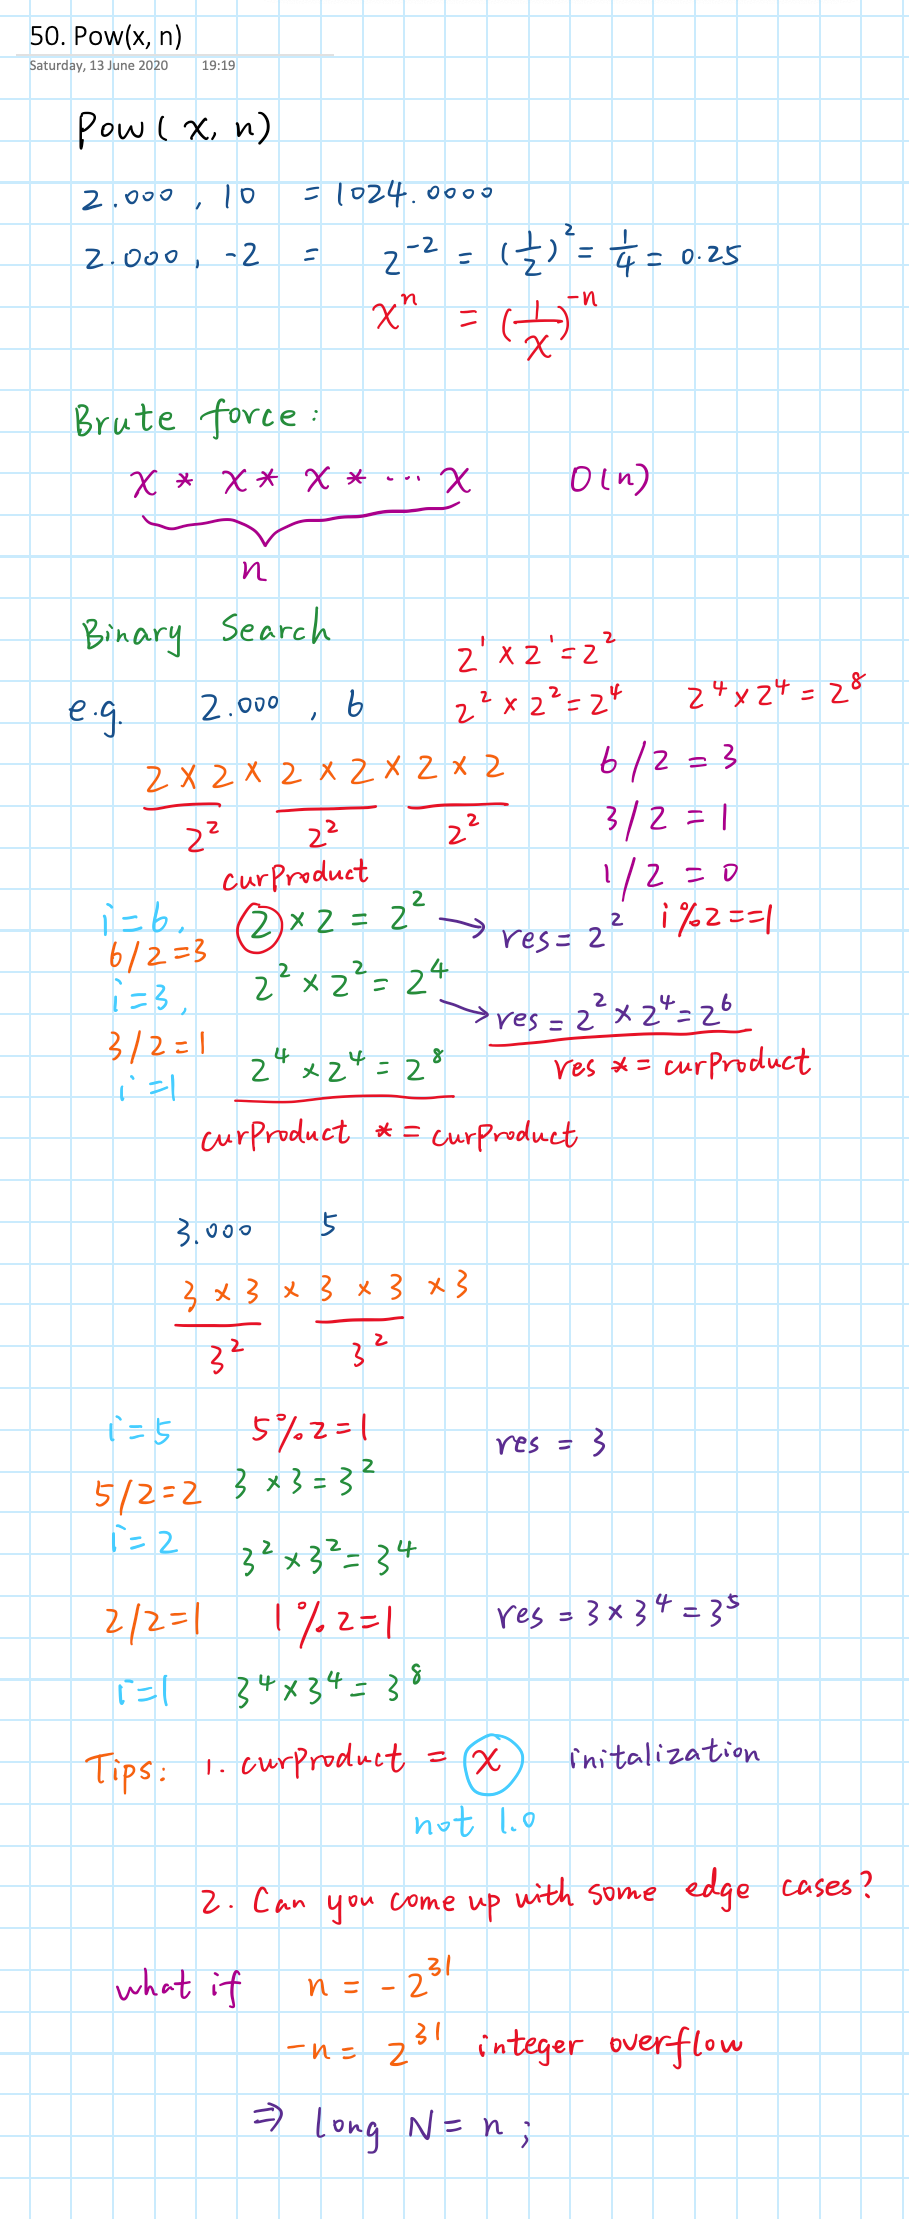 50. Pow(x, n)
Saturday, 13 June 2020 19:19
Pow ( x, n)
2.000 , 10 = 1024.0000
2.000 , -2 = 2⁻² = (1/2)² = 1/4 = 0.25
xⁿ = (1/x)⁻ⁿ
Brute force:
x * x * x * ... x O(n)
n
Binary Search
2¹ × 2¹ = 2²
2² × 2² = 2⁴ 2⁴ × 2⁴ = 2⁸
e.g. 2.000 , 6
6 / 2 = 3
2 × 2 × 2 × 2 × 2 × 2
3 / 2 = 1
2² 2² 2²
1 / 2 = 0
curProduct
i = 6, 2 × 2 = 2² → res = 2² i % 2 == 1
6 / 2 = 3
i = 3, 2² × 2² = 2⁴ → res = 2² × 2⁴ = 2⁶
3 / 2 = 1
2⁴ × 2⁴ = 2⁸ res *= curProduct
i = 1
curProduct *= curProduct
3.000 5
3 × 3 × 3 × 3 × 3
3² 3²
i = 5 5 % 2 = 1 res = 3
5 / 2 = 2 3 × 3 = 3²
i = 2 3² × 3² = 3⁴
2 / 2 = 1 1 % 2 = 1 res = 3 × 3⁴ = 3⁵
i = 1 3⁴ × 3⁴ = 3⁸
Tips: 1. curProduct = x initalization
not 1.0
2. Can you come up with some edge cases?
what if n = - 2³¹
-n = 2³¹ integer overflow
⇒ long N = n ;